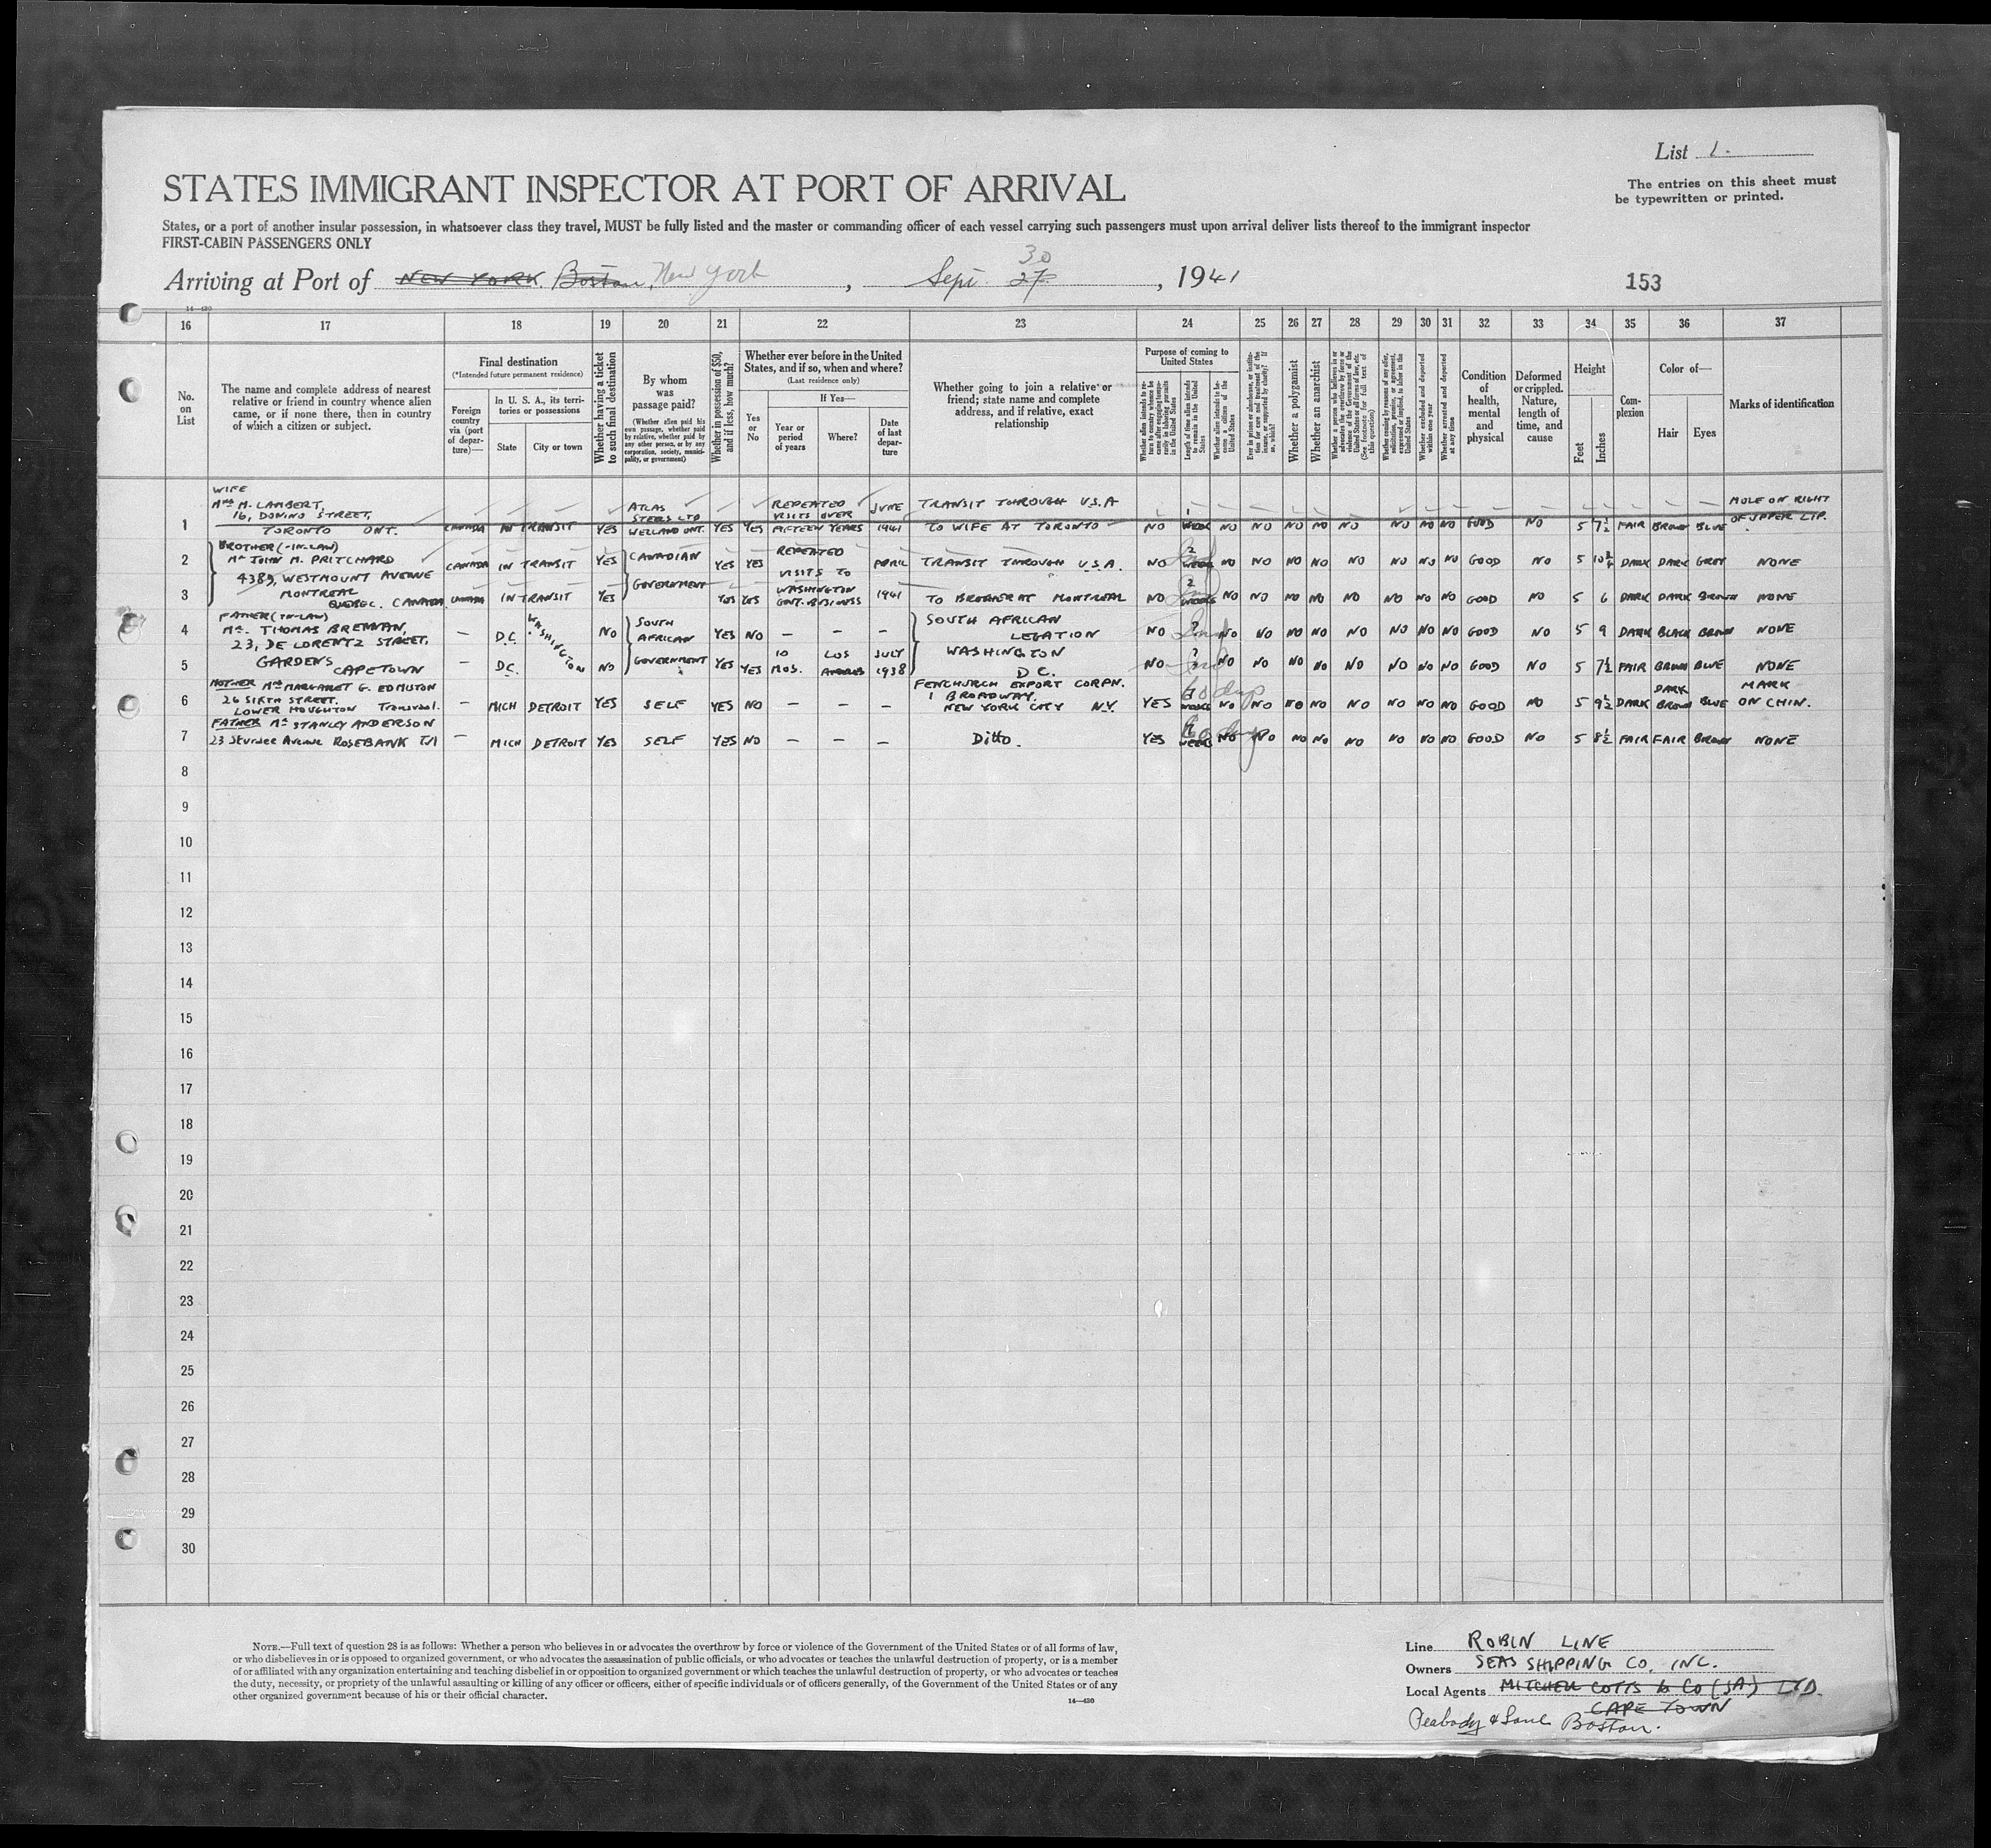 List 1.
The entries on this sheet must
be typewritten or printed.
STATES IMMIGRANT INSPECTOR AT PORT OF ARRIVAL
States, or a port of another insular possession, in whatsoever class they travel, MUST be fully listed and the master or commanding officer of each vessel carrying such passengers must upon arrival deliver lists thereof to the immigrant inspector
FIRST-CABIN PASSENGERS ONLY
Arriving at Port of NEW YORK. Boston, New York, Sept. 27 30, 1941
153
14—430
16 17 18 19 20 21 22 23 24 25 26 27 28 29 30 31 32 33 34 35 36 37
No. on List
The name and complete address of nearest relative or friend in country whence alien came, or if none there, then in country of which a citizen or subject.
Final destination
(*Intended future permanent residence)
Foreign country via (port of departure)—
In U. S. A., its territories or possessions
State
City or town
Whether having a ticket to such final destination
By whom was passage paid?
(Whether alien paid his own passage, whether paid by relative, whether paid by any other person, or by any corporation, society, municipality, or government)
Whether in possession of $50, and if less, how much?
Whether ever before in the United States, and if so, when and where?
(Last residence only)
Yes or No
If Yes—
Year or period of years
Where?
Date of last departure
Whether going to join a relative or friend; state name and complete address, and if relative, exact relationship
Purpose of coming to United States
Whether alien intends to return to country whence he came after engaging temporarily in laboring pursuits in the United States
Length of time alien intends to remain in the United States
Whether alien intends to become a citizen of the United States
Ever in prison or almshouse, or institution for care and treatment of the insane, or supported by charity? If so, which?
Whether a polygamist
Whether an anarchist
Whether a person who believes in or advocates the overthrow by force or violence of the Government of the United States or all forms of law, etc. (See footnote for full text of this question)
Whether coming by reasons of any offer, solicitation, promise, or agreement, expressed or implied, to labor in the United States
Whether excluded and deported within one year
Whether arrested and deported at any time
Condition of health, mental and physical
Deformed or crippled. Nature, length of time, and cause
Height
Feet
Inches
Complexion
Color of—
Hair
Eyes
Marks of identification
1 WIFE MRS M. LAMBERT, 16, DOMINO STREET, TORONTO ONT. CANADA IN TRANSIT YES ATLAS STEELS LTD WELLAND ONT. YES YES REPEATED VISITS OVER FIFTEEN YEARS JUNE 1941 TRANSIT THROUGH U.S.A TO WIFE AT TORONTO NO 1 WEEK NO NO NO NO NO NO NO NO GOOD NO 5 7½ FAIR BROWN BLUE MOLE ON RIGHT OF UPPER LIP.
2 BROTHER (-IN-LAW) MR JOHN M. PRITCHARD 4389, WESTMOUNT AVENUE CANADA IN TRANSIT YES CANADIAN YES YES REPEATED VISITS TO APRIL TRANSIT THROUGH U.S.A. NO 2 WEEKS NO NO NO NO NO NO NO NO GOOD NO 5 10¾ DARK DARK GREY NONE
3 MONTREAL QUEBEC. CANADA. CANADA IN TRANSIT YES GOVERNMENT YES YES WASHINGTON GOVT. BUSINESS 1941 TO BROTHER AT MONTREAL NO 2 WEEKS NO NO NO NO NO NO NO NO GOOD NO 5 6 DARK DARK BROWN NONE
4 FATHER (IN-LAW) MR. THOMAS BRENNAN, 23, DE LORENTZ STREET, — D.C. WASHINGTON NO SOUTH AFRICAN YES NO — — — SOUTH AFRICAN LEGATION NO ? NO NO NO NO NO NO NO NO GOOD NO 5 9 DARK BLACK BROWN NONE
5 GARDENS CAPETOWN — D.C. NO GOVERNMENT YES YES 10 MOS. LOS ANGELES JULY 1938 WASHINGTON D.C. NO ? NO NO NO NO NO NO NO NO GOOD NO 5 7½ FAIR BROWN BLUE NONE
6 MOTHER MRS MARGARET G. EDMISTON 26 SIXTH STREET. LOWER HOUGHTON Transvaal. — MICH DETROIT YES SELF YES NO — — — FENCHURCH EXPORT CORPN. 1 BROADWAY. NEW YORK CITY N.Y. YES 60 days NO NO NO NO NO NO NO NO GOOD NO 5 9½ DARK DARK BROWN BLUE MARK ON CHIN.
7 FATHER MR STANLEY ANDERSON 23 Sturdee Avenue ROSEBANK TVl — MICH DETROIT YES SELF YES NO — — — Ditto. YES 6 WEEKS 60 days NO NO NO NO NO NO NO NO GOOD NO 5 8½ FAIR FAIR BROWN NONE
8
9
10
11
12
13
14
15
16
17
18
19
20
21
22
23
24
25
26
27
28
29
30
NOTE.—Full text of question 28 is as follows: Whether a person who believes in or advocates the overthrow by force or violence of the Government of the United States or of all forms of law,
or who disbelieves in or is opposed to organized government, or who advocates the assassination of public officials, or who advocates or teaches the unlawful destruction of property, or is a member
of or affiliated with any organization entertaining and teaching disbelief in or opposition to organized government or which teaches the unlawful destruction of property, or who advocates or teaches
the duty, necessity, or propriety of the unlawful assaulting or killing of any officer or officers, either of specific individuals or of officers generally, of the Government of the United States or of any
other organized government because of his or their official character.
14—430
Line ROBIN LINE
Owners SEAS SHIPPING CO. INC.
Local Agents MITCHELL COTTS & CO (SA) LTD.
CAPE TOWN
Peabody & Lane Boston.